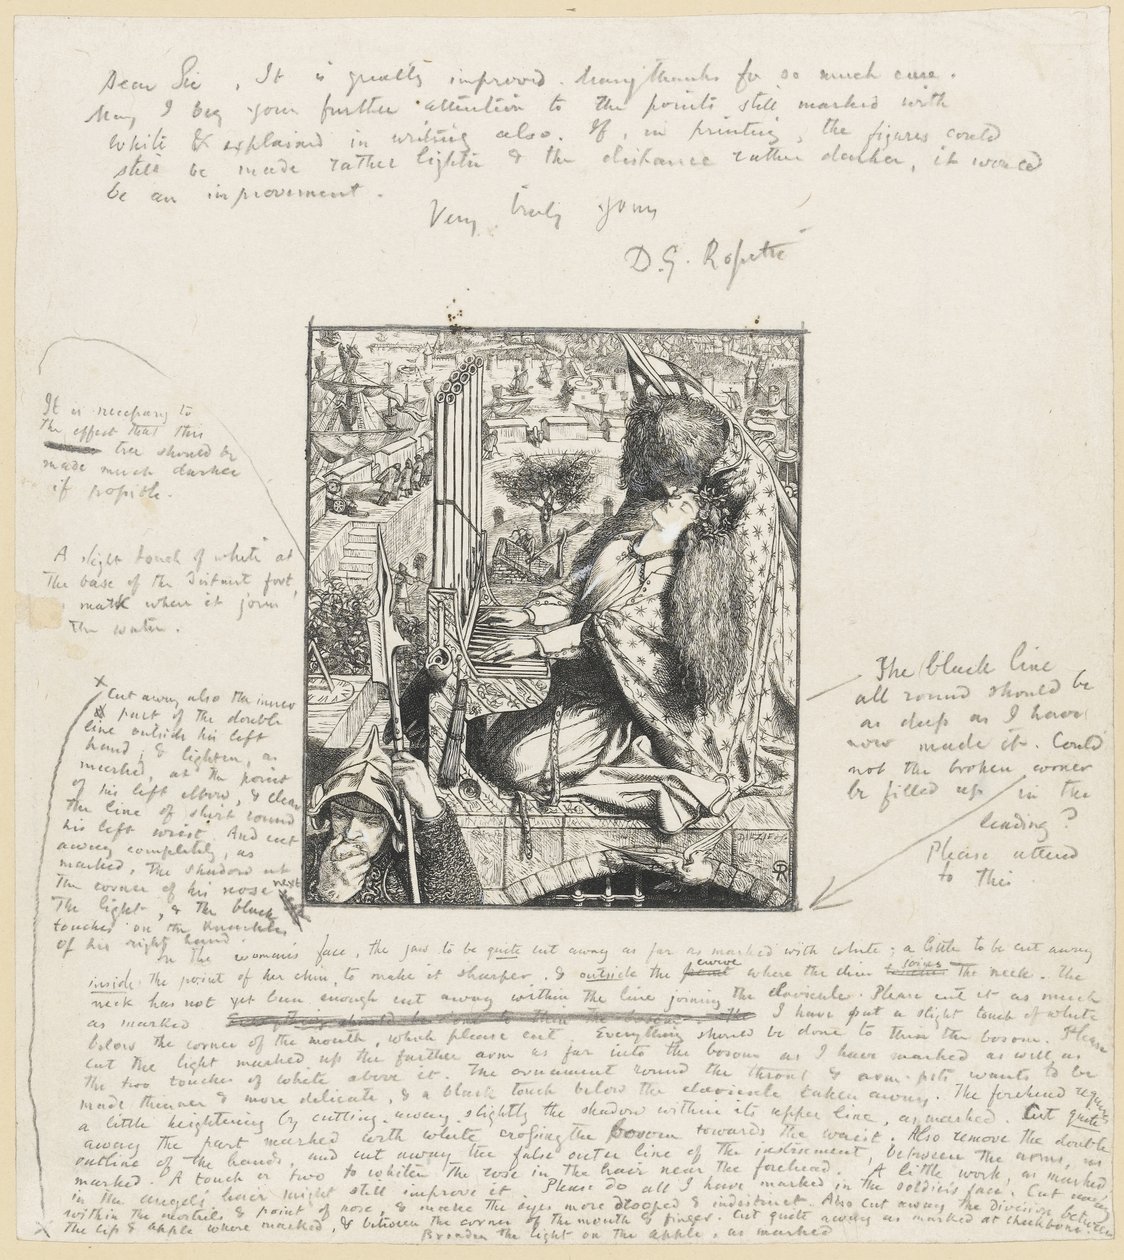 Dear Sir, It is greatly improved. Many thanks for so much care.
May I beg your further attention to the points still marked with
white & explained in writing also. If, in printing, the figures could
still be made rather lighter & the distance rather darker, it would
be an improvement.
Very truly yours
D. G. Rossetti
It is necessary to
the effect that this
tree should be
made much darker
if possible.
A slight touch of white at
the base of the distant fort,
mark where it joins
the water.
x Cut away also the inner
part of the double
line outside his left
hand, & lighten, as
marked, at the point
of his left elbow, & clear
the line of shirt round
his left wrist. And cut
away completely, as
marked, the shadow at
the corner of his nose next
the light, & the black
touches on the knuckles
of his right hand.
The black line
all round should be
as deep as I have
now made it. Could
not the broken corner
be filled up in the
leading?
Please attend
to this
DALZIELS
In the woman's face, the jaw to be quite cut away as far as marked with white; a little to be cut away
inside the point of her chin, to make it sharper, & outside the curve where the chin joins the neck. The
neck has not yet been enough cut away within the line joining the clavicule. Please cut it as much
as marked I have put a slight touch of white
below the corner of the mouth, which please cut. Everything should be done to thin the bosom. Please
cut the light marked up the further arm as far into the bosom as I have marked as well as
the two touches of white above it. The ornament round the throat & arm-pits wants to be
made thinner & more delicate, & a black touch below the clavicule taken away. The forehead requires
a little heightening by cutting away slightly the shadow within its upper line, as marked. Cut quite
away the part marked with white crossing the bosom towards the waist. Also remove the double
outline of the hands, and cut away the false outer line of the instrument, between the arms, as
marked. A touch or two to whiten the rose in the hair near the forehead. A little work, as marked
in the angel's hair might still improve it. Please do all I have marked in the soldier's face. Cut away
within the nostrils & point of nose, & make the eyes more drooped & indistinct. Also cut away the division between
the lip & apple where marked, & between the corner of the mouth & finger. Cut quite away as marked at cheekbone.
Broaden the light on the apple, as marked